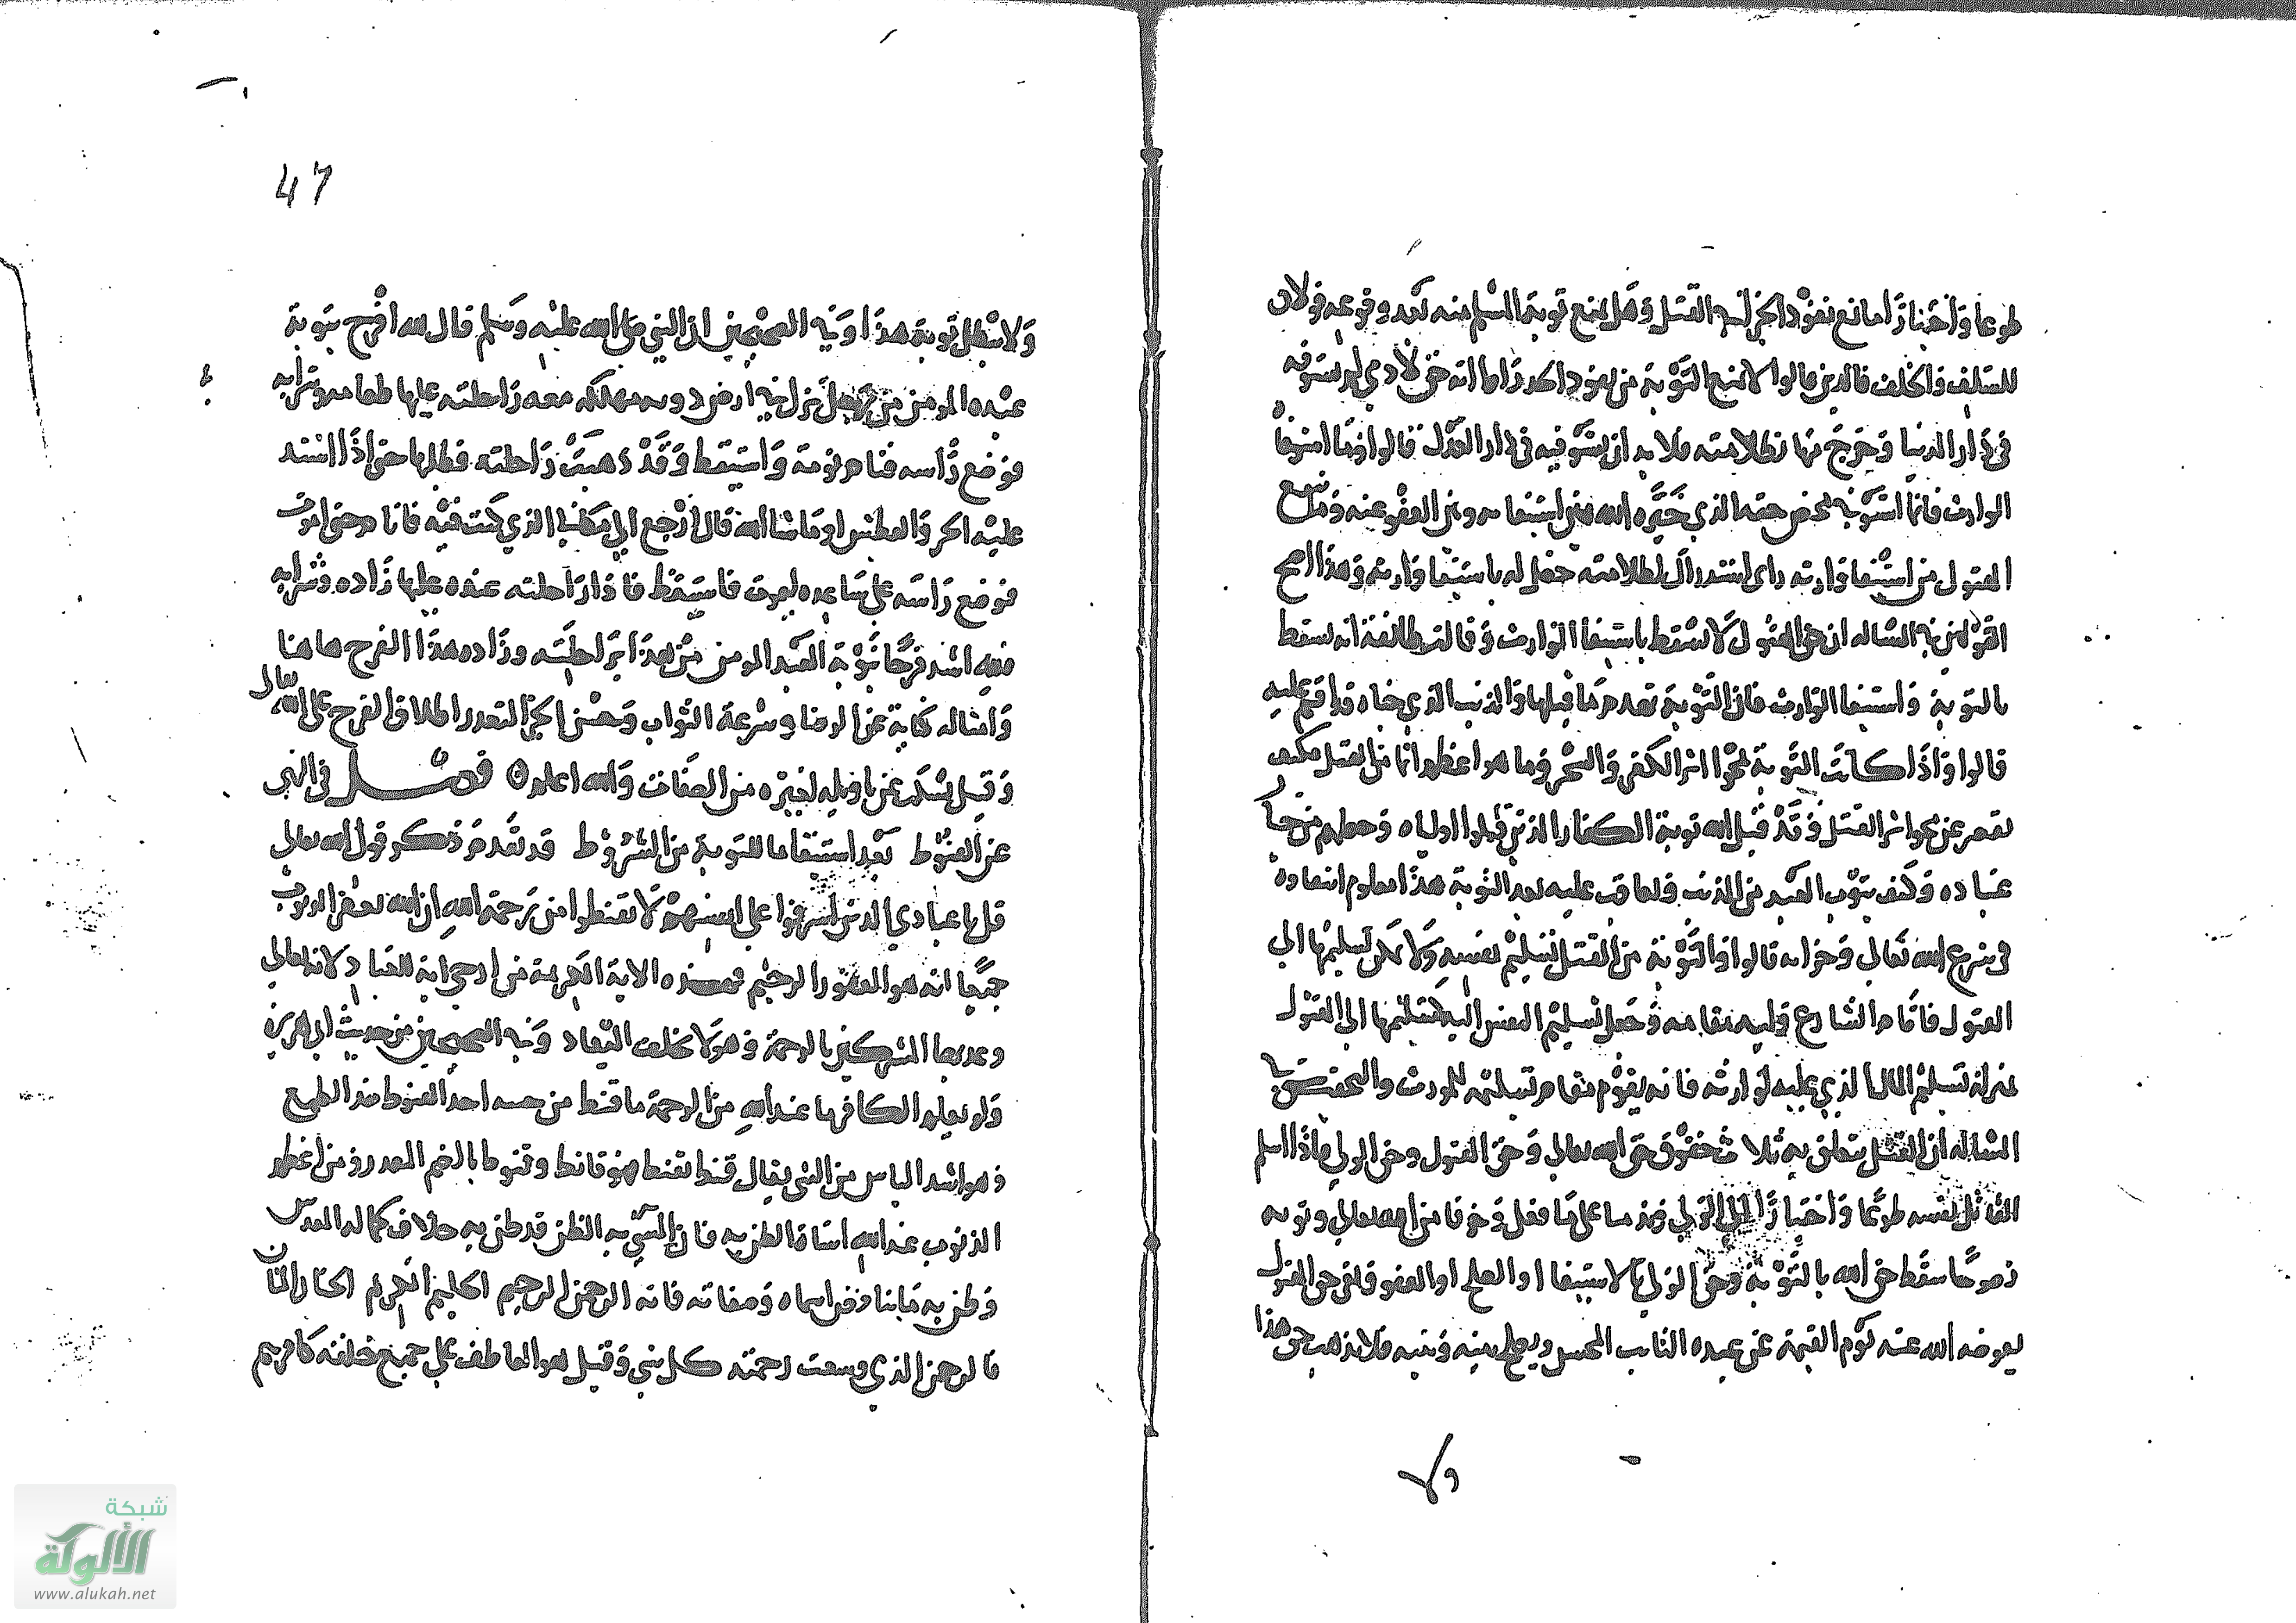 طوعا واختيارا مانع نفوذ الجزا في القتل وهل يمنع توبة المسلم منه بعد وقوعه قولان
للسلف والخلف فالذين قالوا لا تمنع التوبة من نفوذ راوا انه حق لادمي لم يستوفه
في دار الدنيا وخرج منها بظلامته فلا بد ان يستوفيه في دار العدل قالوا وما استوفاه
الوارث فانما استوفى محض حقه الذي خيره الله بين استيفايه وبين العفو عنه وما ينفع
المقتول من استيفا وارثه واي استدراك لظلامته حصل له باستيفا وارثه وهذا اصح
القولين في المساله ان حق المقتول لا يسقط باستيفا الوارث وقالت طائفة انه يسقط
بالتوبة واستيفا الوارث فان التوبة تهدم ما قبلها والذنب الذي جناه قد اقيم عليه
قالوا واذا كانت التوبة تمحوا اثر الكفر والسحر وما هو اعظم اثما من القتل فكيف
تقصر عن محو اثر القتل وقد قبل الله توبة الكفار الذين قتلوا اولياه وجعلهم من خيار
عباده وكيف يتوب العبد من الذنب ويعاقب عليه بعد التوبة هذا معلوم انتفاوه
في شرع الله تعالى وجزايه قالوا وتوبة من القتل تسليم نفسه ولا يمكن تسليمها الى
المقتول فاقام الشارع وليه مقامه وجعل تسليم النفس اليه كتسليمها الى المقتول
بمنزلة تسليم المال الذي عليه لوارثه فانه يقوم مقام تسليمه للمورث والتحقيق في
المساله ان القتل يتعلق به ثلاث حقوق حق الله تعالى وحق المقتول وحق الولي فاذا اسلم
القاتل نفسه طوعا واختيارا الى الولي وندما على ما فعل وخوفا من الله تعالى وتوبه
نصوحا سقط حق الله بالتوبة وحق الولي بالاستيفا او الصلح او العفو وبقي حق المقتول
يعوضه الله عنه يوم القيمة عن عبده التائب المحسن ويصلح بينه وبينه فلا يذهب حق هذا
ولا
47
ولا تبطل توبة هذا وفي الصحيحين ان النبي صلى الله عليه وسلم قال لله افرح بتوبة
عبده المومن من رجل نزل في ارض دويه مهلكه معه راحلته عليها طعامه وشرابه
فوضع راسه فنام نومة واستيقظ وقد ذهبت راحلته فطلبها حتى اذا اشتد
عليه الحر والعطش او ما شا الله قال ارجع الى مكاني الذي كنت فيه فانام حتى اموت
فوضع راسه على ساعده ليموت فاستيقظ فاذا راحلته عنده عليها زاده وشرابه
فالله اشد فرحا بتوبة العبد المومن من هذا براحلته وزاده هذا الفرح هاهنا
وامثاله كناية عن الرضا وسرعة الثواب وحسن الجزا لتعذر اطلاق الفرح على الله تعالى
وقيل يسكت عن تاويله لغيره من الصفات والله اعلم فصل في النهي
عن القنوط بعد استيفا ما للتوبة من الشروط قد تقدم ذكر قول الله تعالى
قل يا عبادي الذين اسرفوا على انفسهم لا تقنطوا من رحمة الله ان الله يغفر الذنوب
جميعا انه هو الغفور الرحيم فهذه الاية الكريمة من ارجى اية للعباد لانه تعالى
وعد بها المشركين بالرحمة وهو لا يخلف الميعاد وفي الصحيحين من حديث ابي هريرة
ولو يعلم الكافر ما عند الله من الرحمة ما قنط من جنته احد القنوط ضد الطمع
وهو اشد الياس من الشي يقال قنط يقنط فهو قانط وقنوطا بالضم المصدر ومن اعظم
الذنوب عند الله اساة الظن به فان المسي به الظن قد ظن به خلاف كماله المقدس
وظن به ما يناقض اسماه وصفاته فانه الرحمن الرحيم الحليم الكريم الحنان المنان
فالرحمن الذي وسعت رحمته كل شي وقيل هو العاطف على جميع خلقه كافرهم
شبكة
الألوكة
www.alukah.net